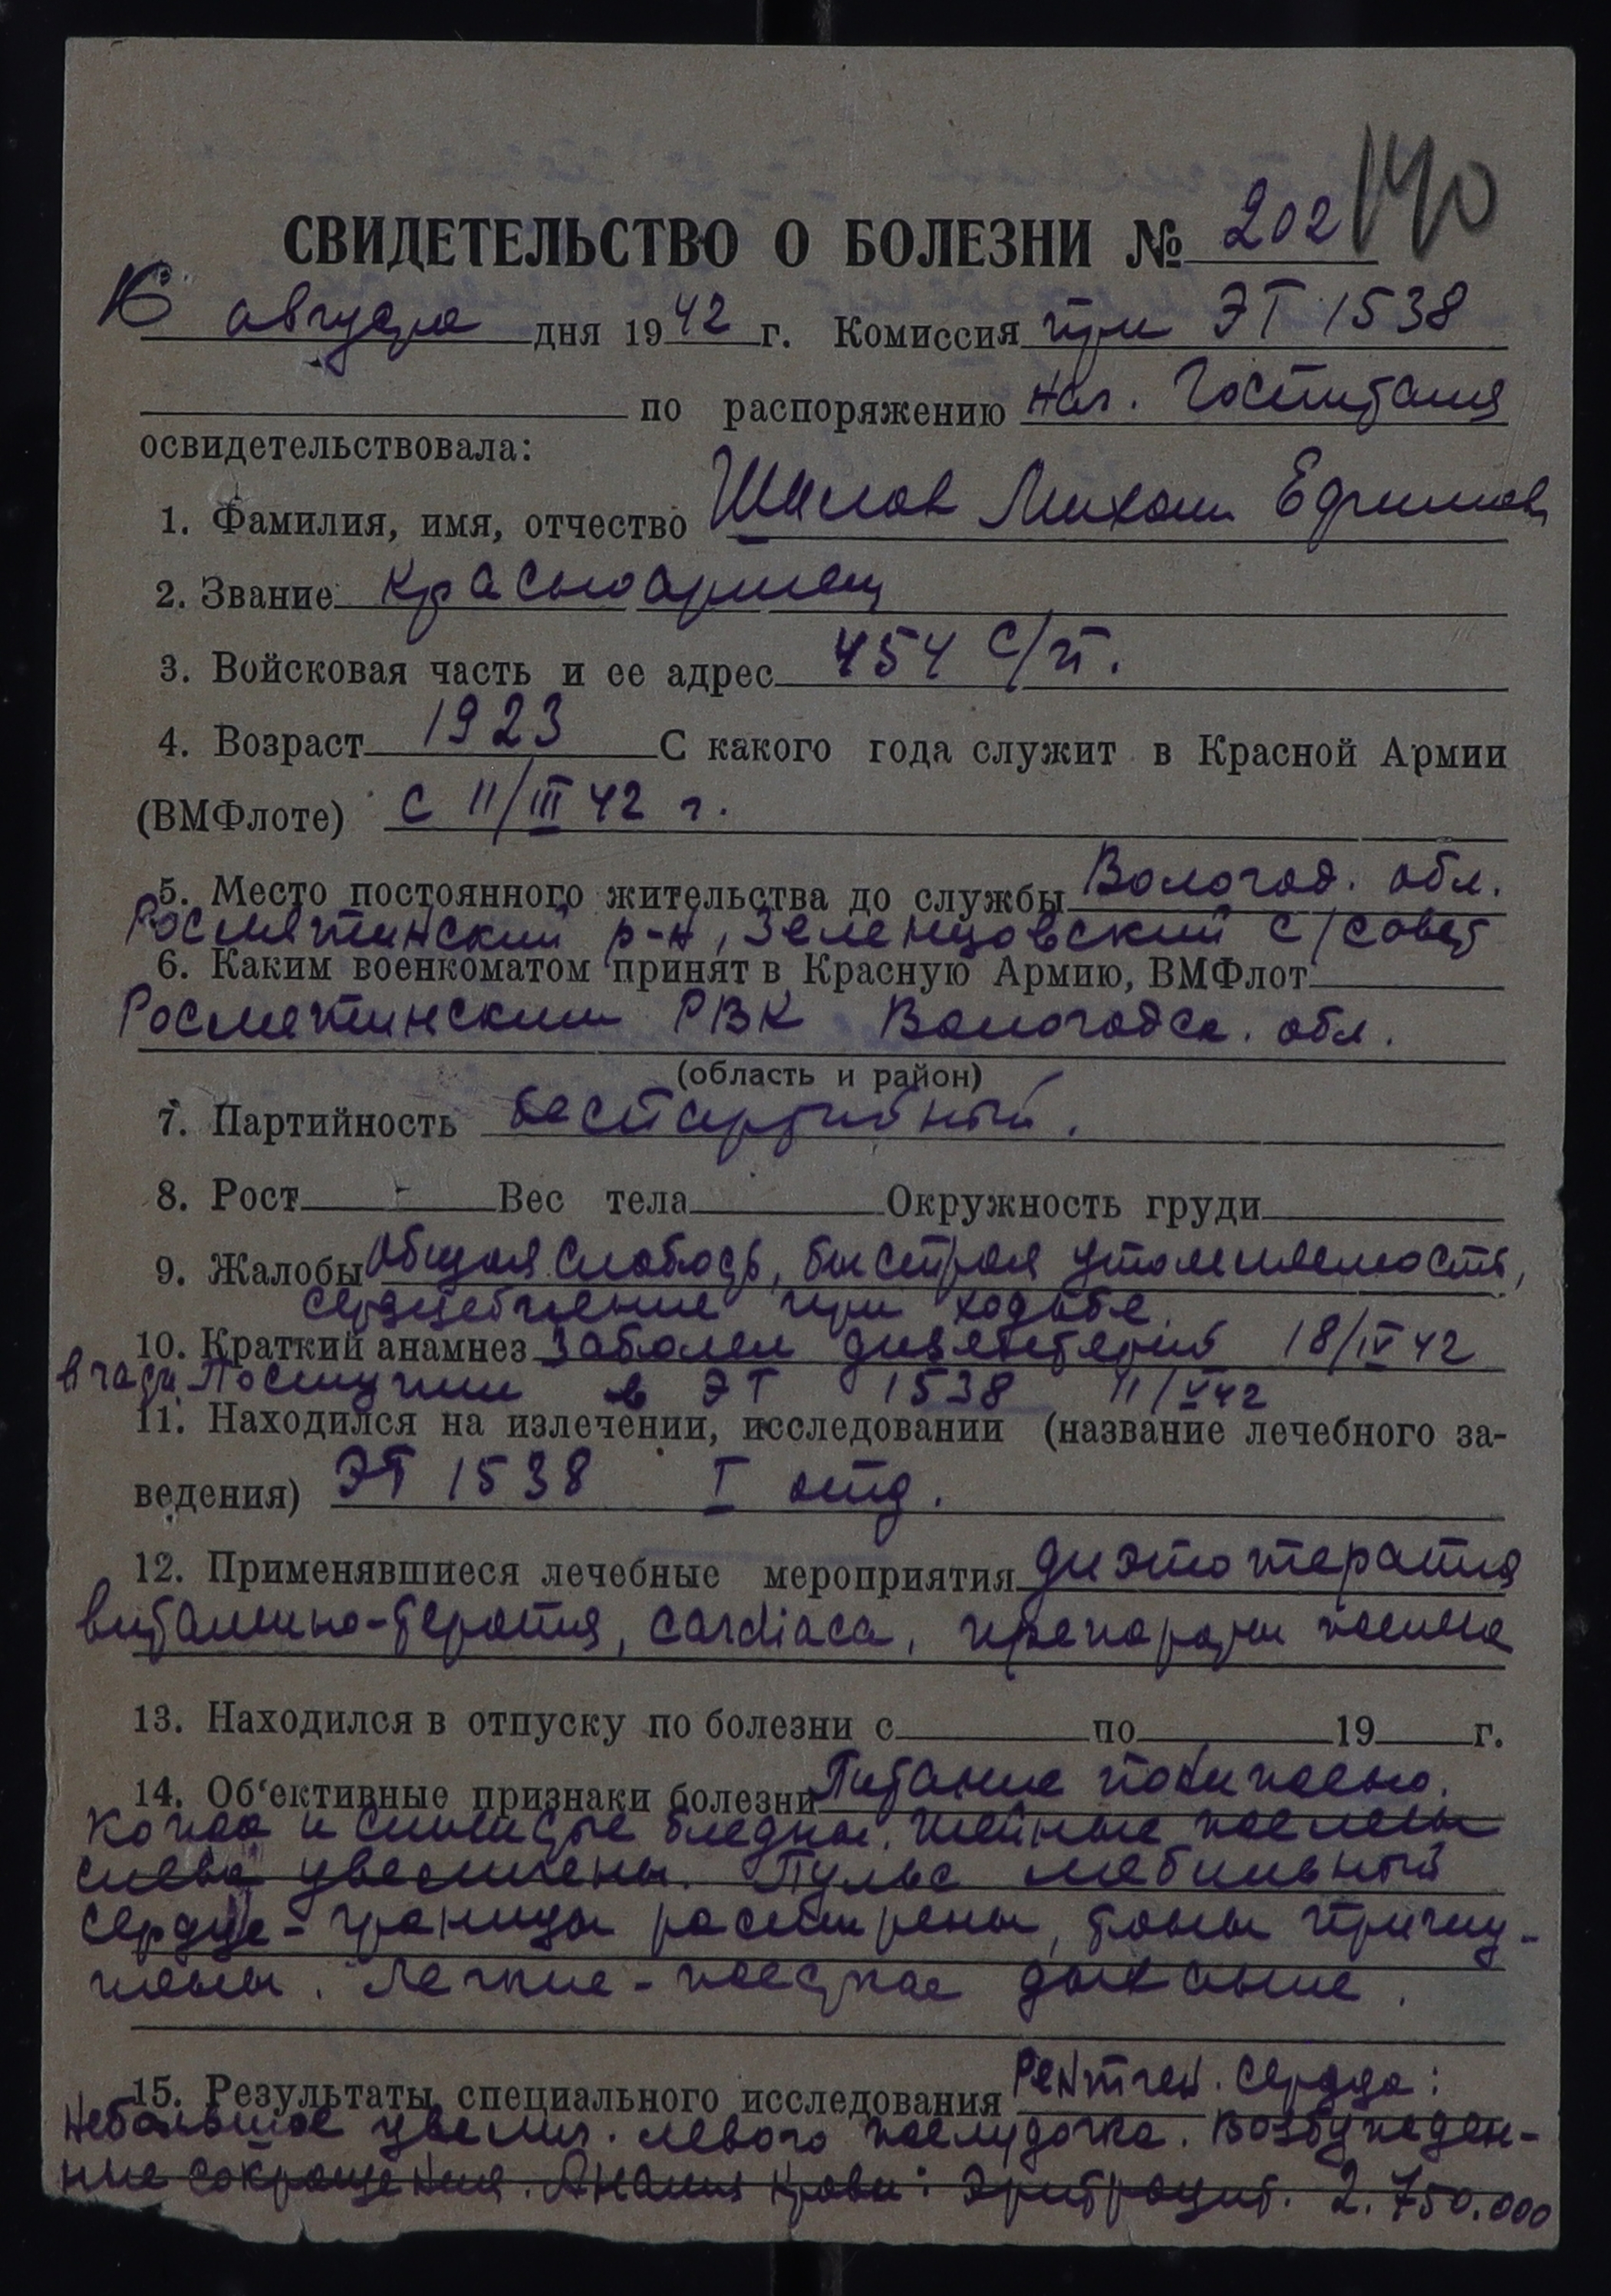 140
СВИДЕТЕЛЬСТВО О БОЛЕЗНИ № 202
августа дня 1942 г. Комиссия при ЭГ 1538
по распоряжению нач. Госпиталя
освидетельствовала:
1. Фамилия, имя, отчество Шилов Михаил Ефимов
2. Звание Красноармеец
3. Войсковая часть и ее адрес 454 с/п.
4. Возраст 1923 С какого года служит в Красной Армии
(ВМФлоте) с 11/III 42 г.
5. Место постоянного жительства до службы Вологод. обл.
Рослятинский р-н, Зеленцовский с/совет
6. Каким военкоматом принят в Красную Армию, ВМФлот
Рослятинским РВК Вологодск. обл.
(область и район)
7. Партийность беспартийный.
8. Рост - Вес тела Окружность груди
9. Жалобы Общая слабость, быстрая утомляемость,
сердцебиение при ходьбе.
10. Краткий анамнез Заболел дизентерией 18/IV 42
в части. Поступил в ЭГ 1538 11/V 42
11. Находился на излечении, исследовании (название лечебного за-
ведения) ЭГ 1538 I отд.
12. Применявшиеся лечебные мероприятия диэтотерапия
витамино-терапия, cardiaca, препараты железа
13. Находился в отпуску по болезни с по 19 г.
14. Об'ективные признаки болезни Питание понижено.
Кожа и слизистые бледны. Шейные железы
слева увеличены. Пульс лабильный
Сердце - границы расширены, тоны приглу-
шены. Легкие - жесткое дыхание.
15. Результаты специального исследования Рентген. сердца:
Небольшое увелич. левого желудочка. Возбужден-
ные сокращения. Анализ крови: Эритроцит. 2.750.000